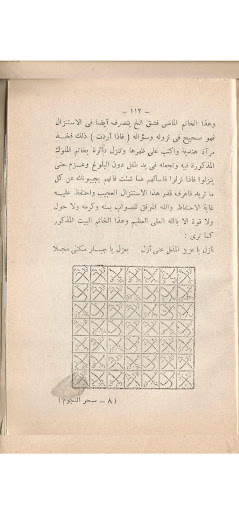 — ١١٢ —
وهذا الخاتم الماضى فشق الخ يتصرف أيضا فى الاستنزال
فهو صحيح فى نزوله وسؤاله ( فاذا أردت ) ذلك فخذ
مرآة هندية واكتب على ظهرها وتنزل دائرة بخاتم الملوك
المذكورة فيه وتجعله فى يد طفل دون البلوغ وعزم حتى
ينزلوا فاذا نزلوا فاسألهم عما شئت فانهم يجيبونك عن كل
ما تريد فاعرف قدر هذا الاستنزال العجيب واحتفظ عليه
غاية الاحتفاظ والله الموفق للصواب بمنه وكرمه ولا حول
ولا قوة الا بالله العلى العظيم وهذا الخاتم البيت المذكور
كما ترى :
يا عزيز حتى أزل يعزل يا جبار مكانى مجلا
( ٨ — سحر النجوم )